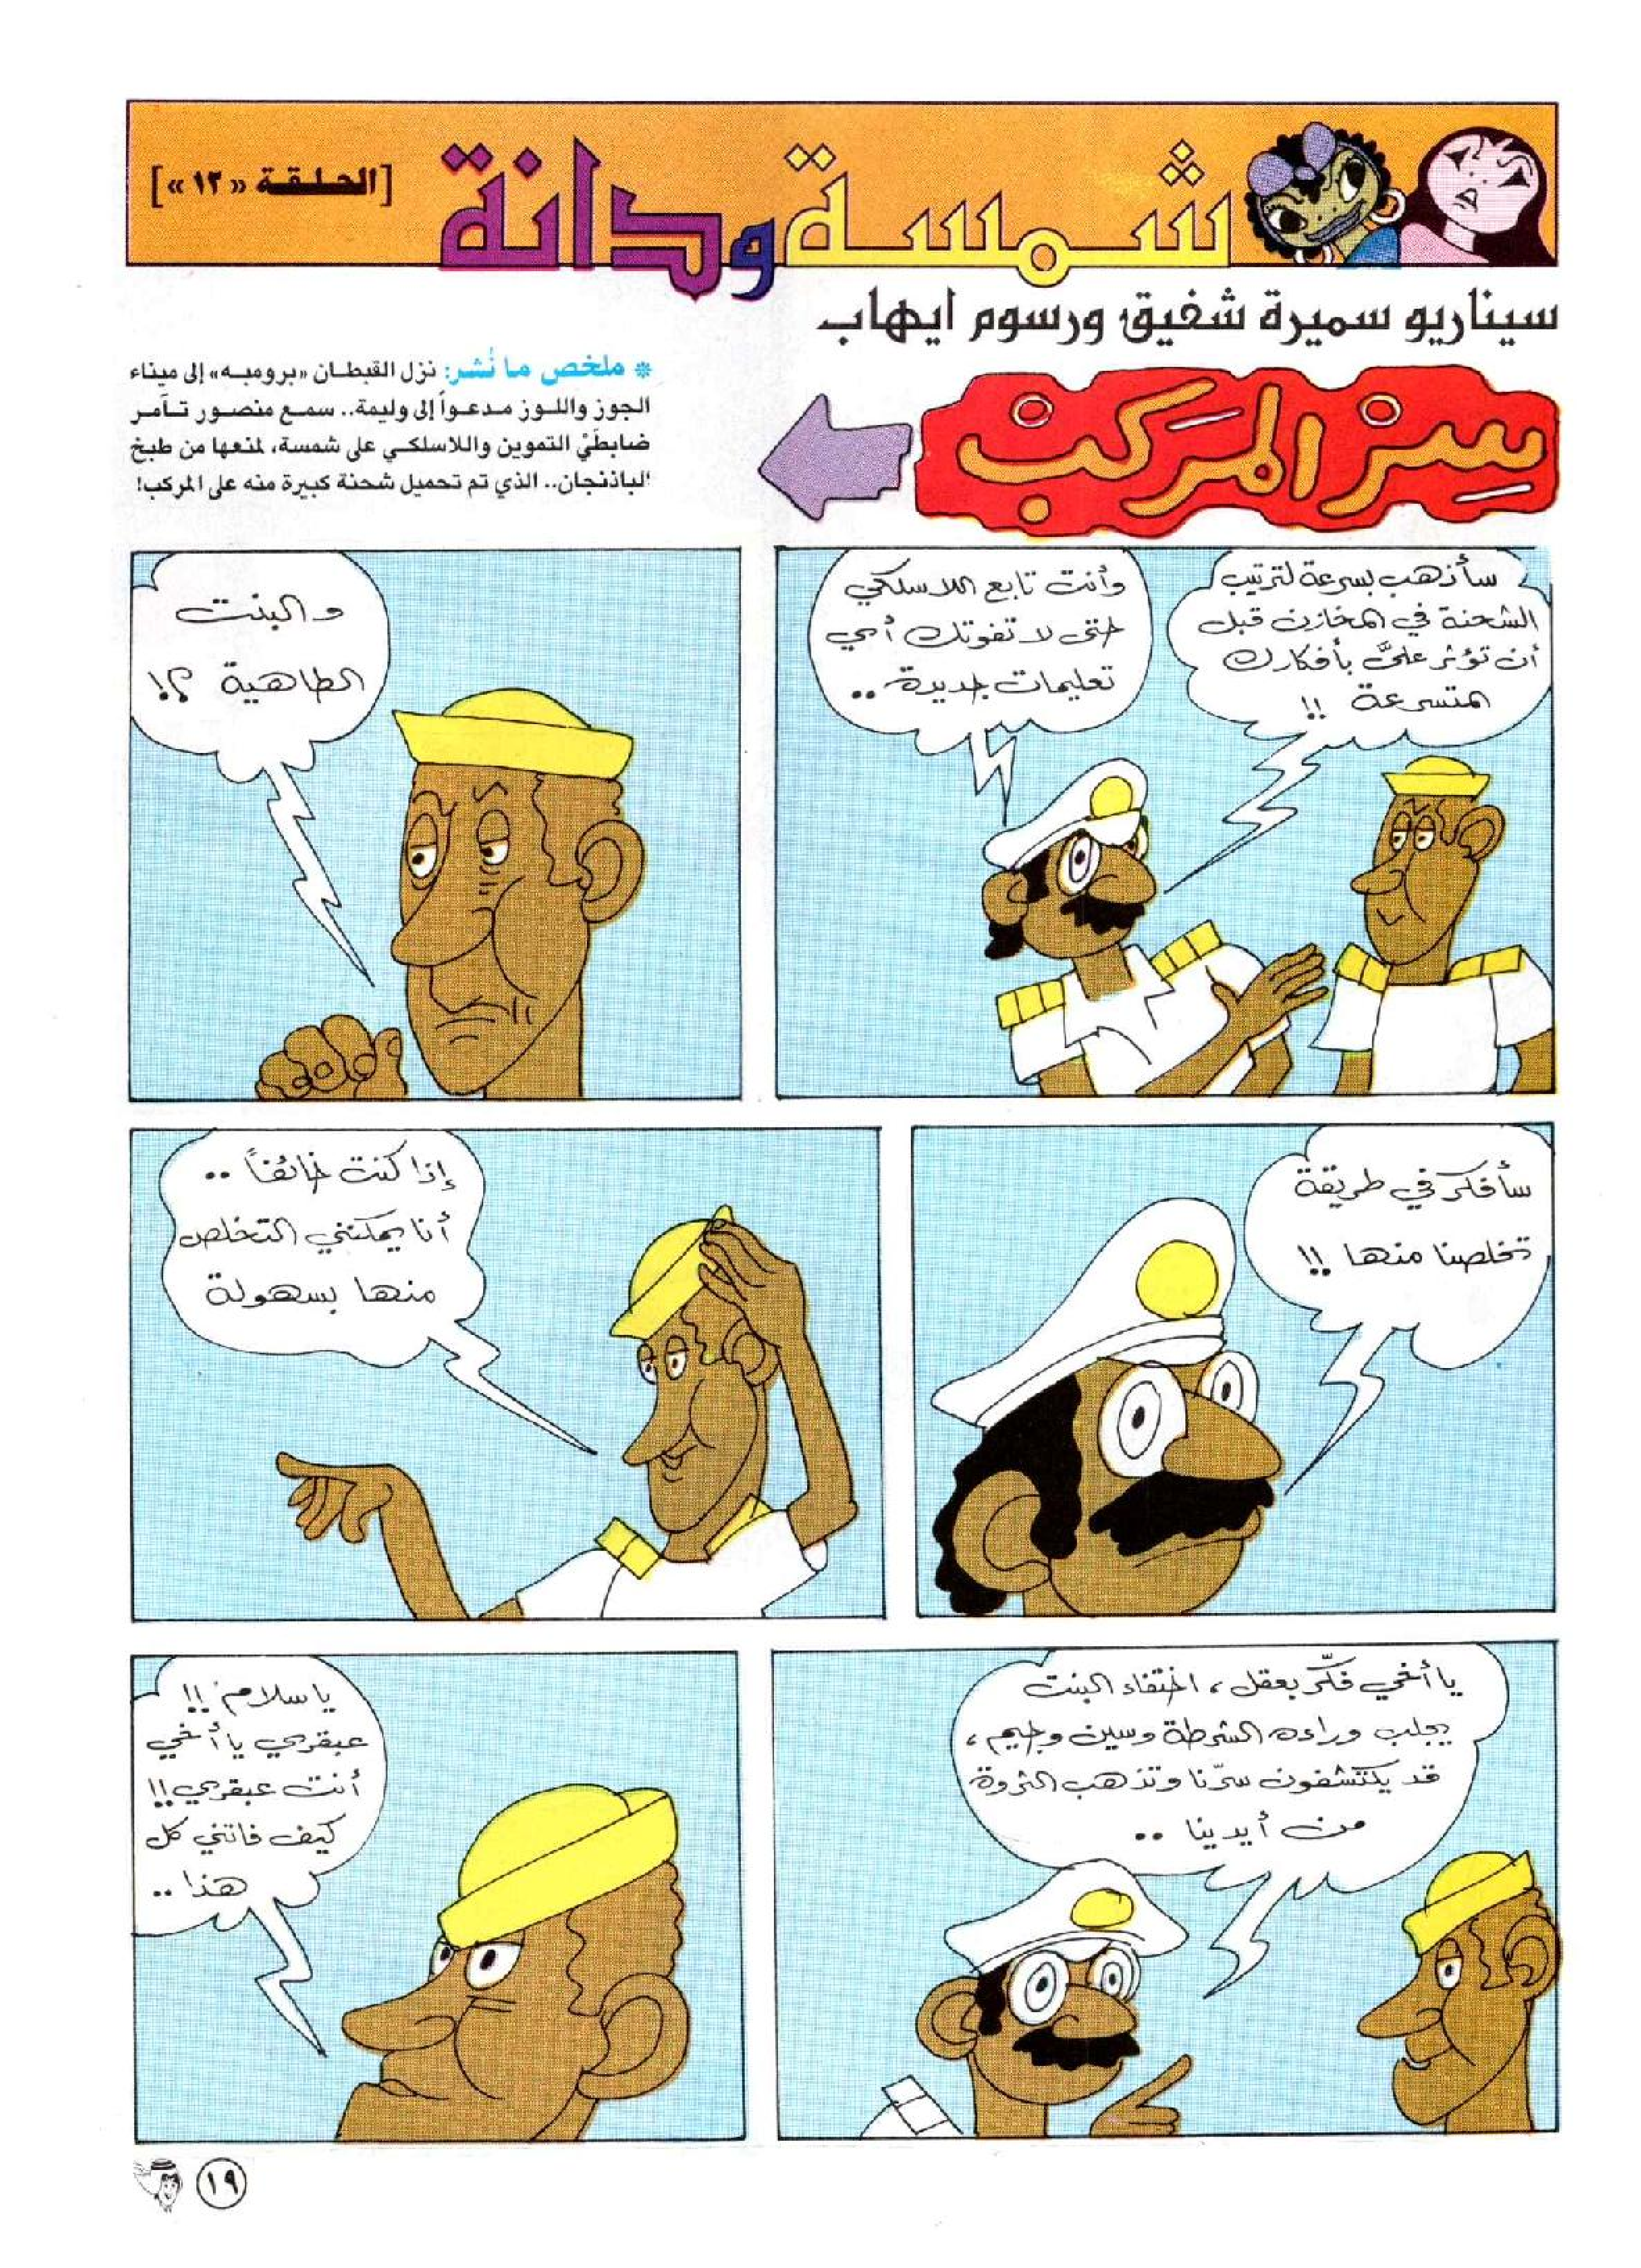 شمسة ودانة
[الحلقة «١٢»]
سيناريو سميرة شفيق ورسوم ايهاب
سر المركب
* ملخص ما نُشر: نزل القبطان «برومبه» إلى ميناء
الجوز واللوز مدعواً إلى وليمة.. سمع منصور تآمر
ضابطَيْ التموين واللاسلكي على شمسة، لمنعها من طبخ
الباذنجان.. الذي تم تحميل شحنة كبيرة منه على المركب!
سأذهب بسرعة لترتيب
الشحنة في المخازن قبل
أن تؤثر عليَّ بأفكارك
المتسرعة !!
وأنت تابع اللاسلكي
حتى لا تفوتك أي
تعليمات جديدة ..
والبنت
الطاهية ؟!
سأفكر في طريقة
تخلصنا منها !!
إذا كنت خائفاً ..
أنا يمكنني التخلص
منها بسهولة
يا أخي فكّر بعقل، اختفاء البنت
يجلب وراءه الشرطة وسين وجيم،
قد يكتشفون سرّنا وتذهب الثروة
من أيدينا ..
يا سلام !!
عبقري يا أخي
أنت عبقري !!
كيف فاتني كل
هذا ..
١٩